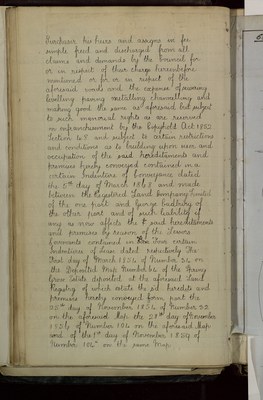 Purchaser his heirs and assigns in fee
simple freed and discharged from all
claims and demands by the Council for
or in respect of their charge hereinbefore
mentioned or for or in respect of the
aforesaid work and the expense of sewering
levelling paving metalling channelling and
making good the same as aforesaid but subject
to such manorial rights as are reserved
on enfranchisement by the Copyhold Act 1852
Section 48 and subject to certain restrictions
and conditions as to building upon user and
occupation of the said hereditaments and
premises hereby conveyed contained in a
certain Indenture of Conveyance dated
the 5th day of March 1868 and made
between the Land Company Limited
of the one part and George Sadbury of
the other part and of such liability if
any as now affects the said hereditaments
and premises by reason of the Lessors
Covenants contained in two certain
Indentures of Lease dated respectively the
First day of March 185 of Number 34 on
the Deposited Map Number of the
Estate deposited at the aforesaid Land
Registry of which estate the sd. heredits and
premises hereby conveyed form part the
28th day of November 185 of Number 33
on the aforesaid Map the 29th day of November
185 of Number 106 on the aforesaid Map
and of the 1st day of November 1859 of
Number 104 on the same Map